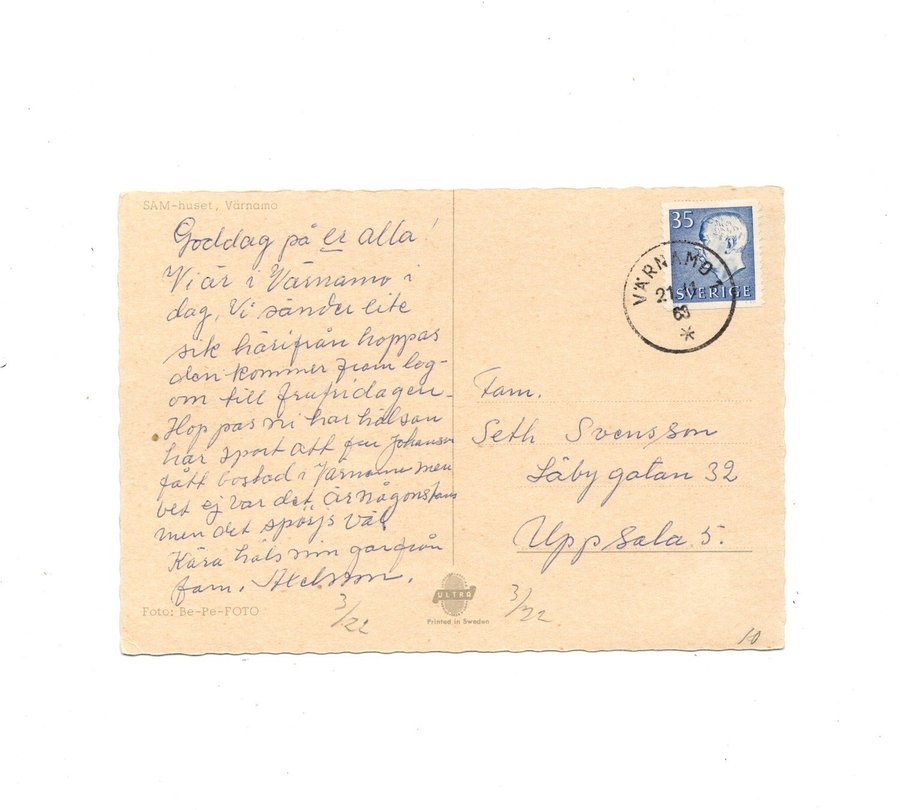 SAM-huset, Värnamo
Goddag på er alla!
Vi är i Värnamo i
dag, Vi sänder lite
sik härifrån hoppas
den kommer fram log-
om till frukidagen-
Hoppas ni har hälsan
har sport att fru Johanson
fått bostad i Värnamo men
vet ej var det är någonstans
men det spörjs väl
Kära hälsningar från
fam. Axelsson.
3/22
Foto: Be-Pe-FOTO
ULTRA
Printed in Sweden
35
SVERIGE
VÄRNAMO 1
21 11
63
Fam.
Seth Svensson
Läby gatan 32
Uppsala 5.
3/22
10